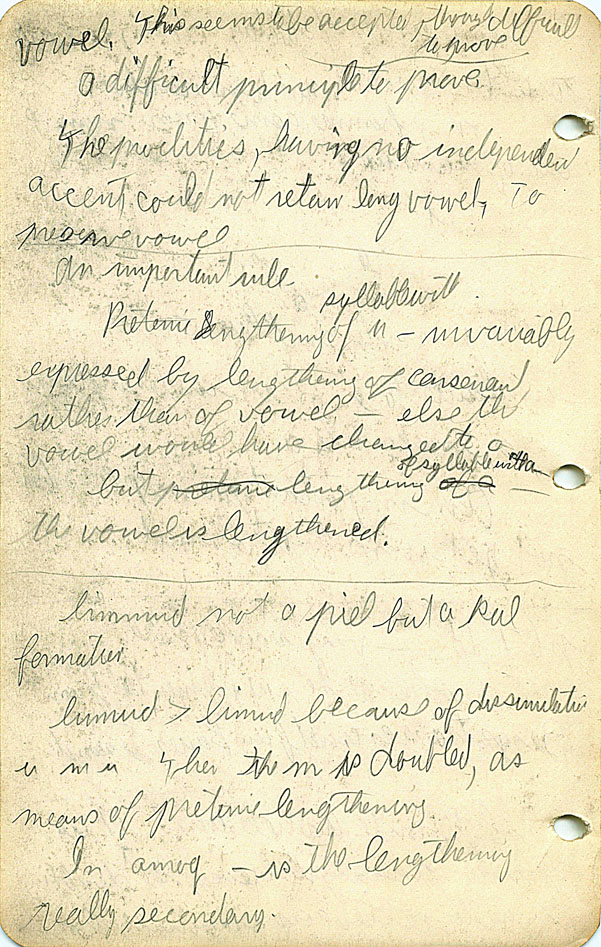 vowel. This seems to be accepted, though difficult
to prove
a difficult principle to prove.
The proclitics, having no independent
accent could not retain long vowel, To
preserve vowel
An important rule.
syllable with
Pretonic lengthening of u – invariably
expressed by lengthening of consonant
rather than of vowel – else the
vowel would have changed to o
of syllable with a
but pretonic lengthening of a –
the vowel is lengthened.
limmud not a piel but a kal
formation
lumud > limud because of dissimilation
u m u Then the m is doubled, as
means of pretonic lengthening.
In amoq – is the lengthening
really secondary.